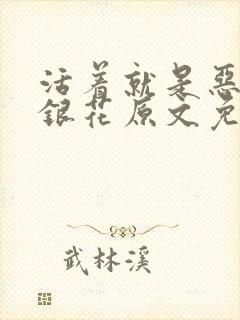 活着就是恶
银花原文免
武林溪